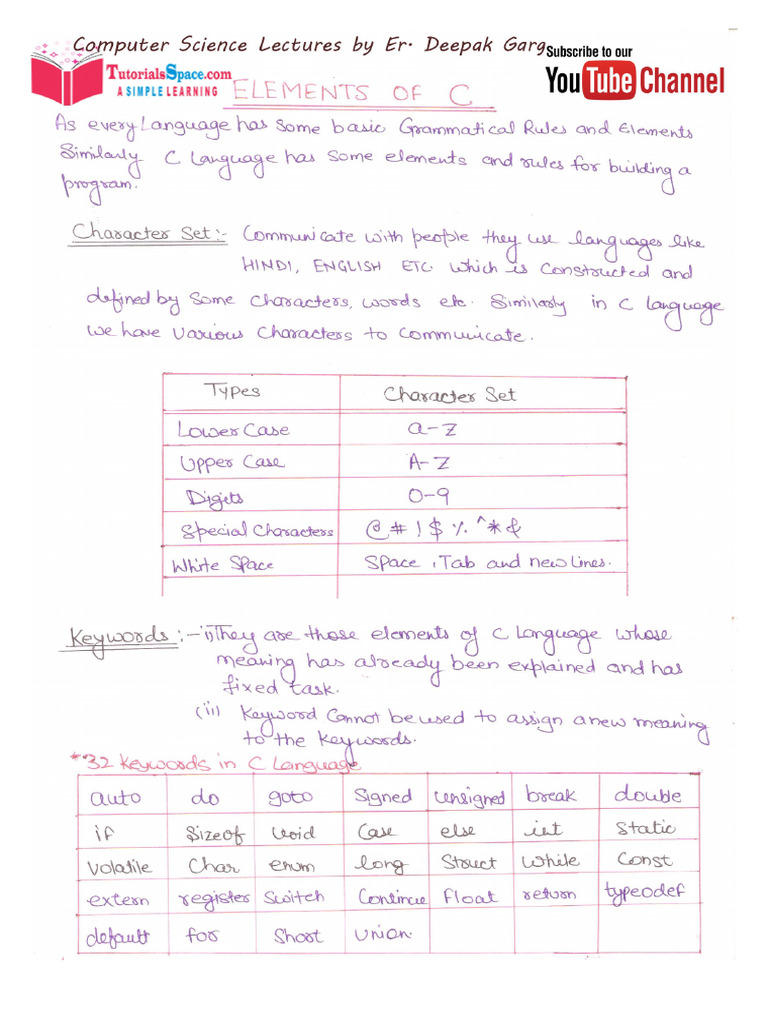 Computer Science Lectures by Er. Deepak Garg
Subscribe to our
TutorialsSpace.com
A SIMPLE LEARNING
YouTube Channel
ELEMENTS OF C
As every Language has some basic Grammatical Rules and Elements
Similarly C Language has some elements and rules for building a
program.
Character Set :- Communicate with people they use languages like
HINDI, ENGLISH ETC. which is constructed and
defined by some characters, words etc. Similarly in C language
we have various characters to communicate.
Types Character Set
Lower Case a-z
Upper Case A-Z
Digits 0-9
Special Characters @ # ! $ % ^ * &
White Space Space, Tab and new lines.
Keywords :- i) They are those elements of C Language whose
meaning has already been explained and has
fixed task.
(ii) Keyword cannot be used to assign a new meaning
to the keywords.
* 32 Keywords in C Language
auto do goto Signed unsigned break double
if Sizeof void Case else int Static
volatile Char enum long Struct while Const
extern register Switch Continue float return typeodef
default for Short union